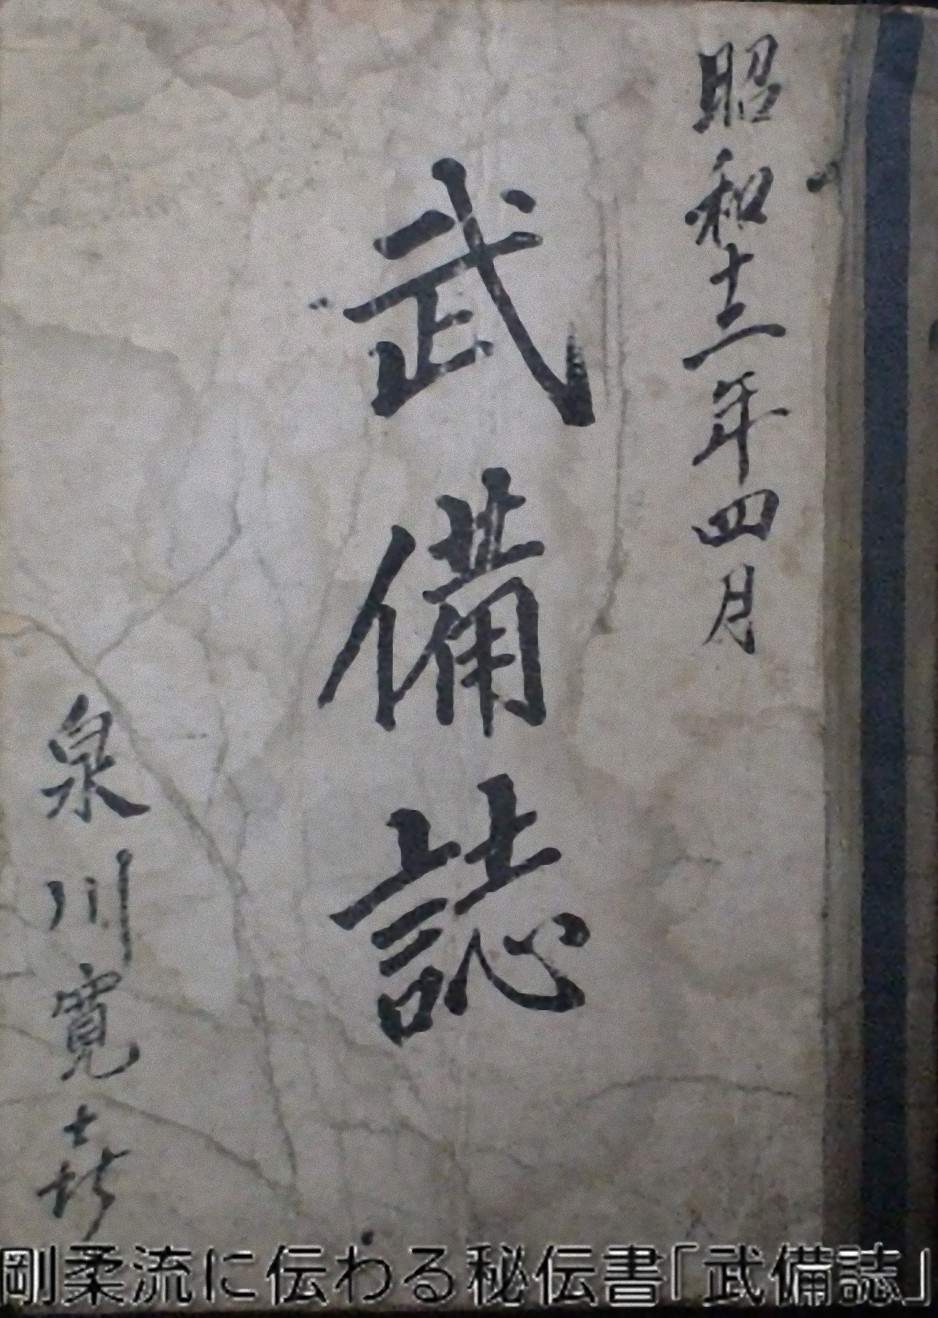 昭和十三年四月
武備誌
泉川寛㐂
剛柔流に伝わる秘伝書「武備誌」